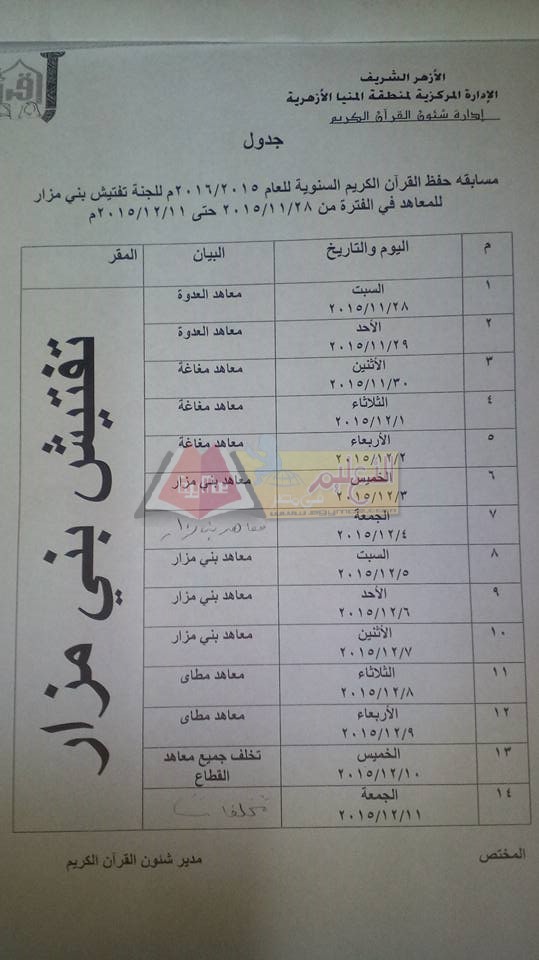 اقرأ
الأزهر الشريف
الإدارة المركزية لمنطقة المنيا الأزهرية
إدارة شئون القرآن الكريم
جدول
مسابقه حفظ القرآن الكريم السنوية للعام ٢٠١٦/٢٠١٥م للجنة تفتيش بني مزار
للمعاهد في الفترة من ٢٠١٥/١١/٢٨ حتى ٢٠١٥/١٢/١١م
م اليوم والتاريخ البيان المقر
١ السبت ٢٠١٥/١١/٢٨ معاهد العدوة
٢ الأحد ٢٠١٥/١١/٢٩ معاهد العدوة
٣ الأثنين ٢٠١٥/١١/٣٠ معاهد مغاغة
٤ الثلاثاء ٢٠١٥/١٢/١ معاهد مغاغة
٥ الأربعاء ٢٠١٥/١٢/٢ معاهد مغاغة
٦ الخميس ٢٠١٥/١٢/٣ معاهد بني مزار
٧ الجمعة ٢٠١٥/١٢/٤ معاهد بني مزار
٨ السبت ٢٠١٥/١٢/٥ معاهد بني مزار
٩ الأحد ٢٠١٥/١٢/٦ معاهد بني مزار
١٠ الأثنين ٢٠١٥/١٢/٧ معاهد بني مزار
١١ الثلاثاء ٢٠١٥/١٢/٨ معاهد مطاى
١٢ الأربعاء ٢٠١٥/١٢/٩ معاهد مطاى
١٣ الخميس ٢٠١٥/١٢/١٠ تخلف جميع معاهد القطاع
١٤ الجمعة ٢٠١٥/١٢/١١
تفتيش بني مزار
المختص
مدير شئون القرآن الكريم